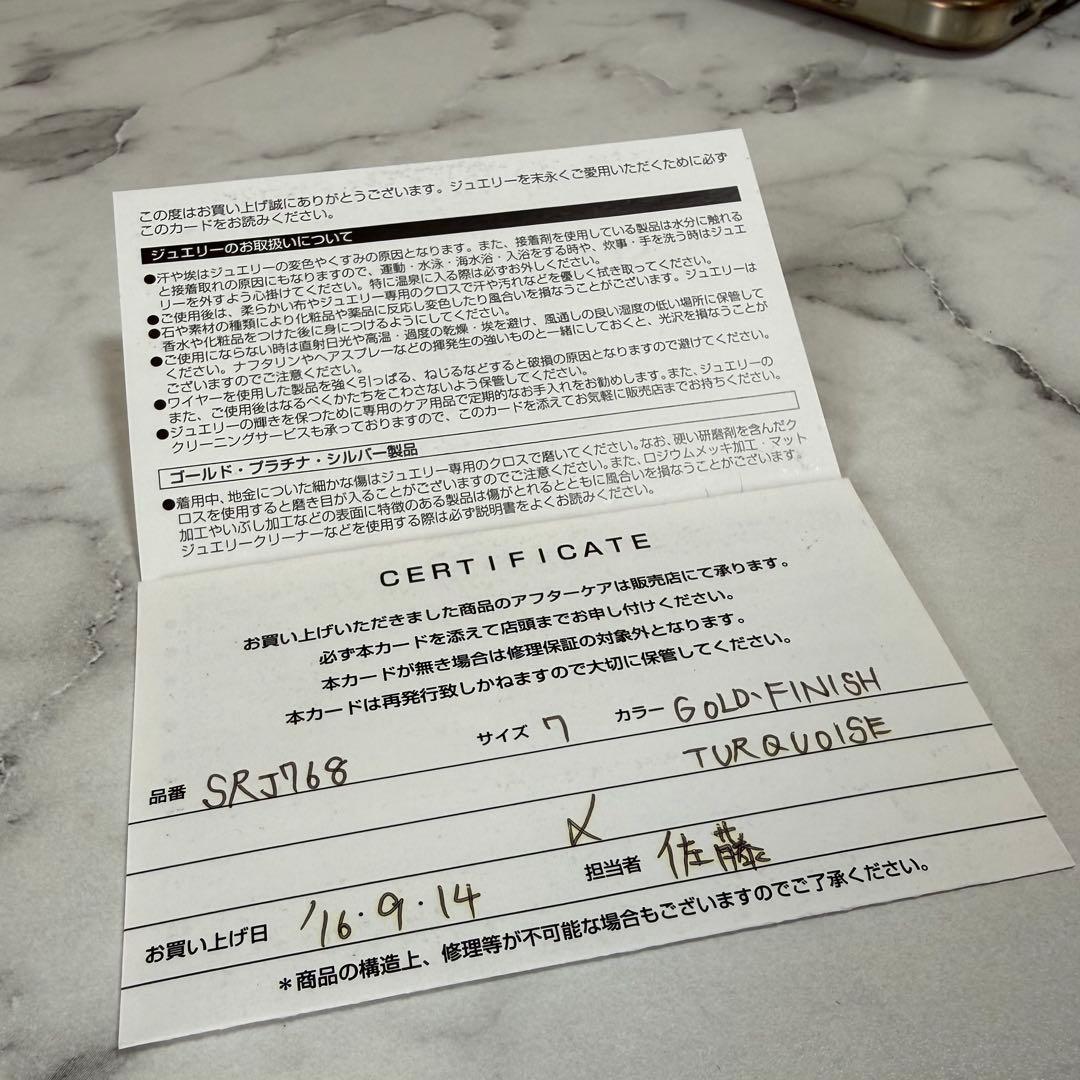 この度はお買い上げ誠にありがとうございます。ジュエリーを末永くご愛用いただくために必ず
このカードをお読みください。
ジュエリーのお取扱いについて
●汗や埃はジュエリーの変色やくすみの原因となります。また、接着剤を使用している製品は水分に触れる
と接着取れの原因にもなりますので、運動・水泳・海水浴・入浴をする時や、炊事・手を洗う時はジュエ
リーを外すよう心掛けてください。特に温泉に入る際は必ずお外しください。
●ご使用後は、柔らかい布やジュエリー専用のクロスで汗や汚れなどを優しく拭き取ってください。
●石や素材の種類により化粧品や薬品に反応し変色したり風合いを損なうことがございます。ジュエリーは
香水や化粧品をつけた後に身につけるようにしてください。
●ご使用にならない時は直射日光や高温・過度の乾燥・埃を避け、風通しの良い湿度の低い場所に保管して
ください。ナフタリンやヘアスプレーなどの揮発生の強いものと一緒にしておくと、光沢を損なうことが
ございますのでご注意ください。
●ワイヤーを使用した製品を強く引っぱる、ねじるなどすると破損の原因となりますので避けてください。
また、ご使用後はなるべくかたちをこわさないよう保管してください。
●ジュエリーの輝きを保つために専用のケア用品で定期的なお手入れをお勧めします。また、ジュエリーの
クリーニングサービスも承っておりますので、このカードを添えてお気軽に販売店までお持ちください。
ゴールド・プラチナ・シルバー製品
●着用中、地金についた細かな傷はジュエリー専用のクロスで磨いてください。なお、硬い研磨剤を含んだク
ロスを使用すると磨き目が入ることがございますのでご注意ください。また、ロジウムメッキ加工・マット
加工やいぶし加工などの表面に特徴のある製品は傷がとれるとともに風合いを損なうことがございます。
ジュエリークリーナーなどを使用する際は必ず説明書をよくお読みください。
CERTIFICATE
お買い上げいただきました商品のアフターケアは販売店にて承ります。
必ず本カードを添えて店頭までお申し付けください。
本カードが無き場合は修理保証の対象外となります。
本カードは再発行致しかねますので大切に保管してください。
品番 SRJ768 サイズ 7 カラー GOLD・FINISH
TURQUOISE
〆
お買い上げ日 '16・9・14 担当者 佐藤
＊商品の構造上、修理等が不可能な場合もございますのでご了承ください。